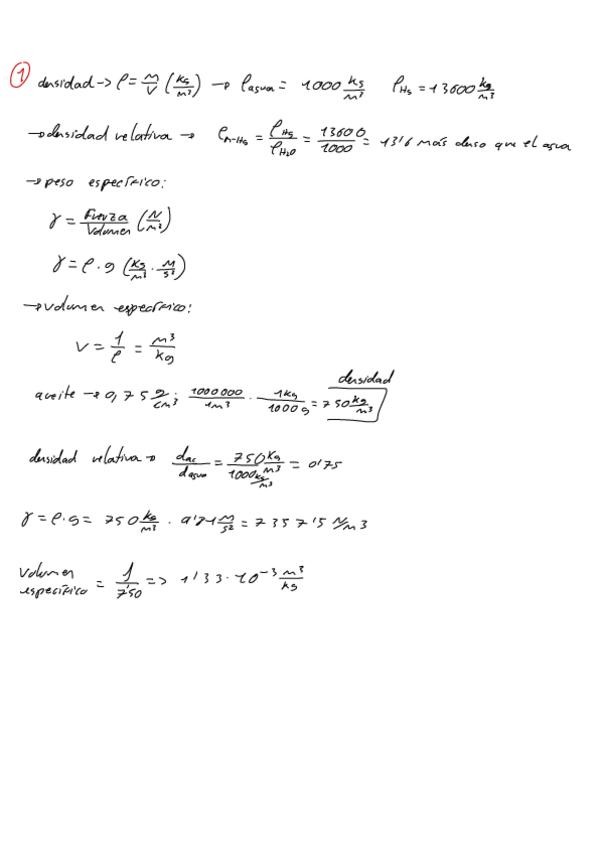 ① densidad -> ρ = m/V (kg/m³) -> ρagua = 1000 kg/m³ ρHg = 13600 kg/m³
-> densidad relativa -> ρr-Hg = ρHg/ρH2O = 13600/1000 = 13'6 más denso que el agua
-> peso específico:
γ = Fuerza/Volumen (N/m³)
γ = ρ · g (kg/m³ · m/s²)
-> volumen específico:
v = 1/ρ = m³/kg
densidad
aceite -> 0,75 g/cm³; 1000000/1m³ · 1kg/1000g = 750 kg/m³
densidad relativa -> dac/dagua = 750 kg/m³/1000 kg/m³ = 0'75
γ = ρ · g = 750 kg/m³ · 9'81 m/s² = 7357'5 N/m3
Volumen específico = 1/750 => 1'33 · 10⁻³ m³/kg